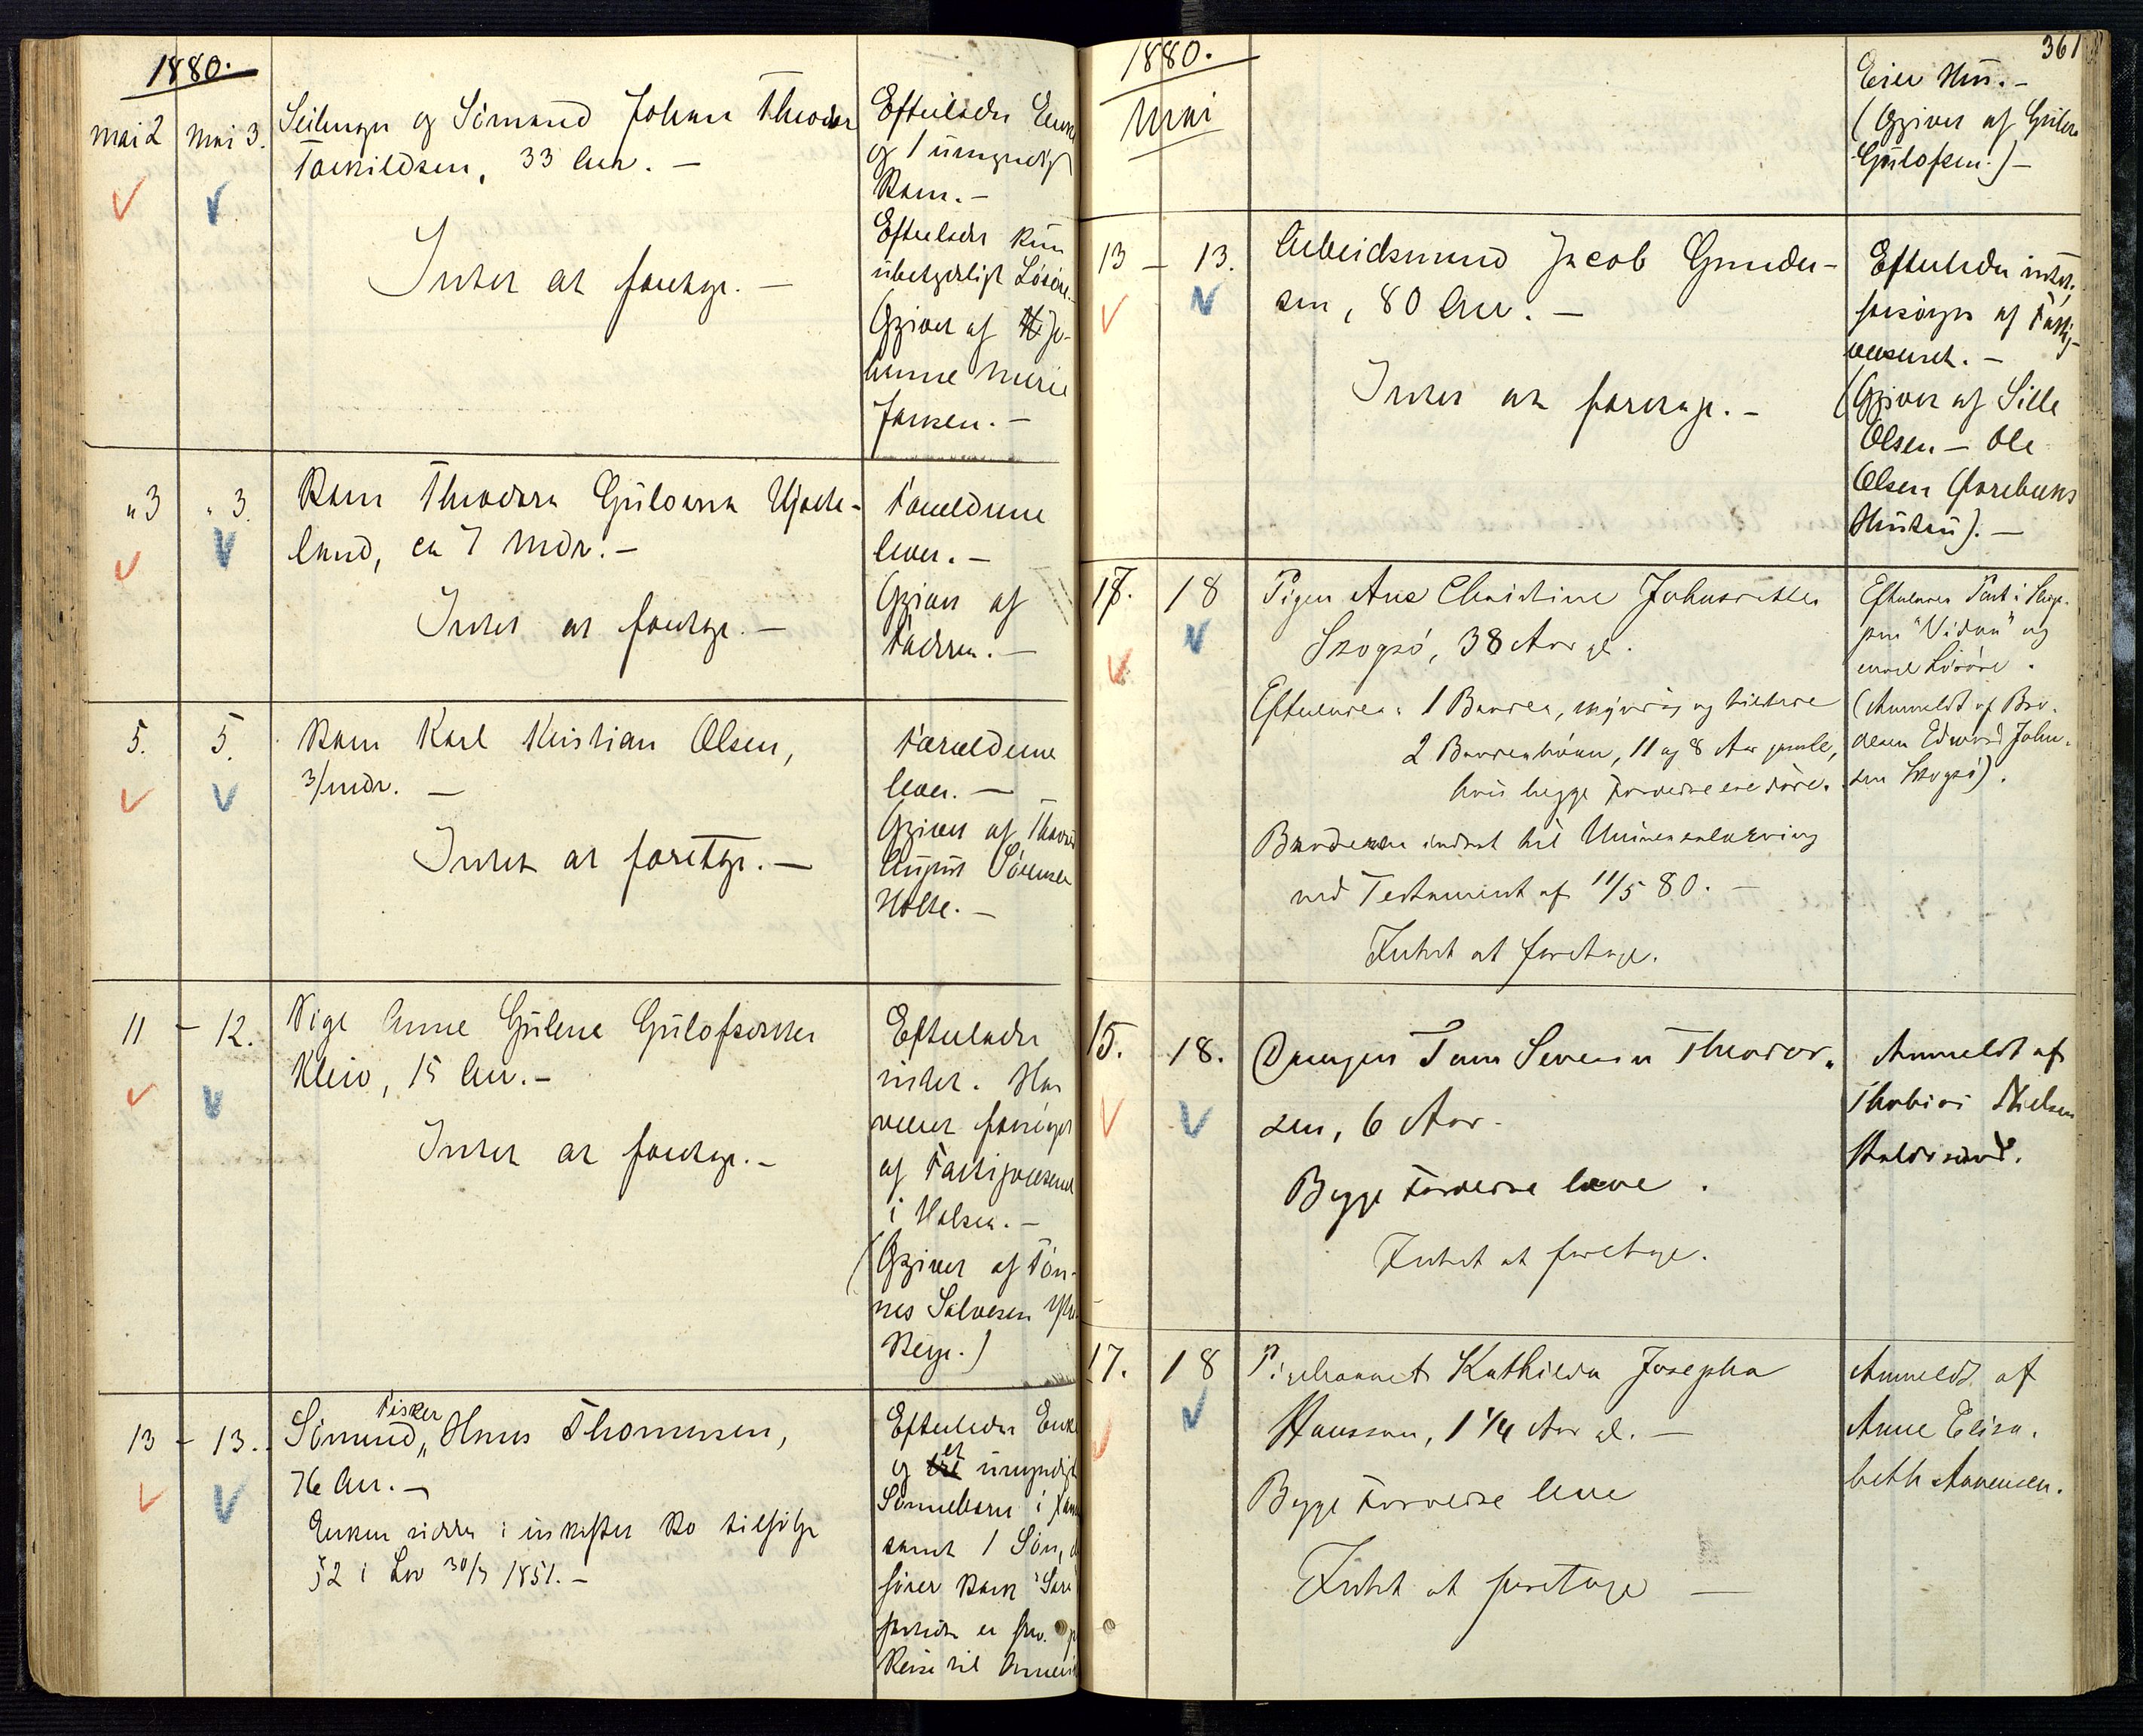 1880.
mai 2 mai 3. Seilmager og Sömand Johan Theodor
Torkildsen, 33 Aar. —
Intet at foretage. —
Efterlader Enke
og 1 umyndigt
Barn. —
Efterlader kun
ubetydeligt Lösöre. —
Opgivet af Jo-
hanne Marie
Jansen. —
" 3 " 3. Barn Theodora Gulovna Hjorte-
land, ca 7 Mdr. —
Intet at foretage. —
Forældrene
lever. —
Opgivet af
Faderen. —
5. 5. Barn Karl Kristian Olsen,
3/mdr. —
Intet at foretage. —
Forældrene
lever. —
Opgivet af
August Sörensen
Holte. —
11 - 12. Pige Anne Gulene Gulofsdatter
Kleiv, 15 Aar. —
Intet at foretage. —
Efterlader
intet. Har
været forsörget
af Fattigvæsenet
i Halsen. —
(Opgivet af Tön-
nes Salvesen
Berge.)
13 - 13. Sömand, Fisker Hans Thomasen,
76 Aar. —
Enken sidder i uskiftet Bo tilfölge
§2 i Lov 30/7 1851. —
Efterlader Enke
og et umyndigt
Sönnebarn i
samt 1 Sön,
förer Bark
er paa
Reise til Amerika
1880.
361
Mai
Eier Hus. —
(Opgivet af Gulov
Gulofsen.) —
13 — 13. Arbeidsmand Jacob Gunder-
sen, 80 Aar. —
Intet at foretage. —
Efterlader intet,
forsörges af Fattig-
væsenet. —
(Opgivet af Sille
Olsen — Ole
Olsen Farebuks
Hustru). —
17. 18 Pigen Ane Christine Johnsdatter
Skogsö, 38 Aar gl.
Efterlever: 1 Broder, myndig og tilstede
2 Broderbörn, 11 og 8 Aar gamle,
hvis begge Forældre ere döde.
Broderen indsat til Universalarving
ved Testament af 11/5 80. —
Intet at foretage.
Efterlader Part i Skon-
"Vidar" og
endel Lösöre.
(Anmeldt af Bro-
deren Edvard John-
sen Skogsö).
15. 18. Drengen Tom Severin Theodor-
sen, 6 Aar.
Begge Forældre leve.
Intet at foretage.
Anmeldt af
Thobias Nielsen
17. 18 Pigebarnet Kathilda Josepha
Hansson, 1 1/4 Aar gl. —
Begge Forældre leve
Intet at foretage —
Anmeldt af
Anne Elisa-
beth Aanensen.